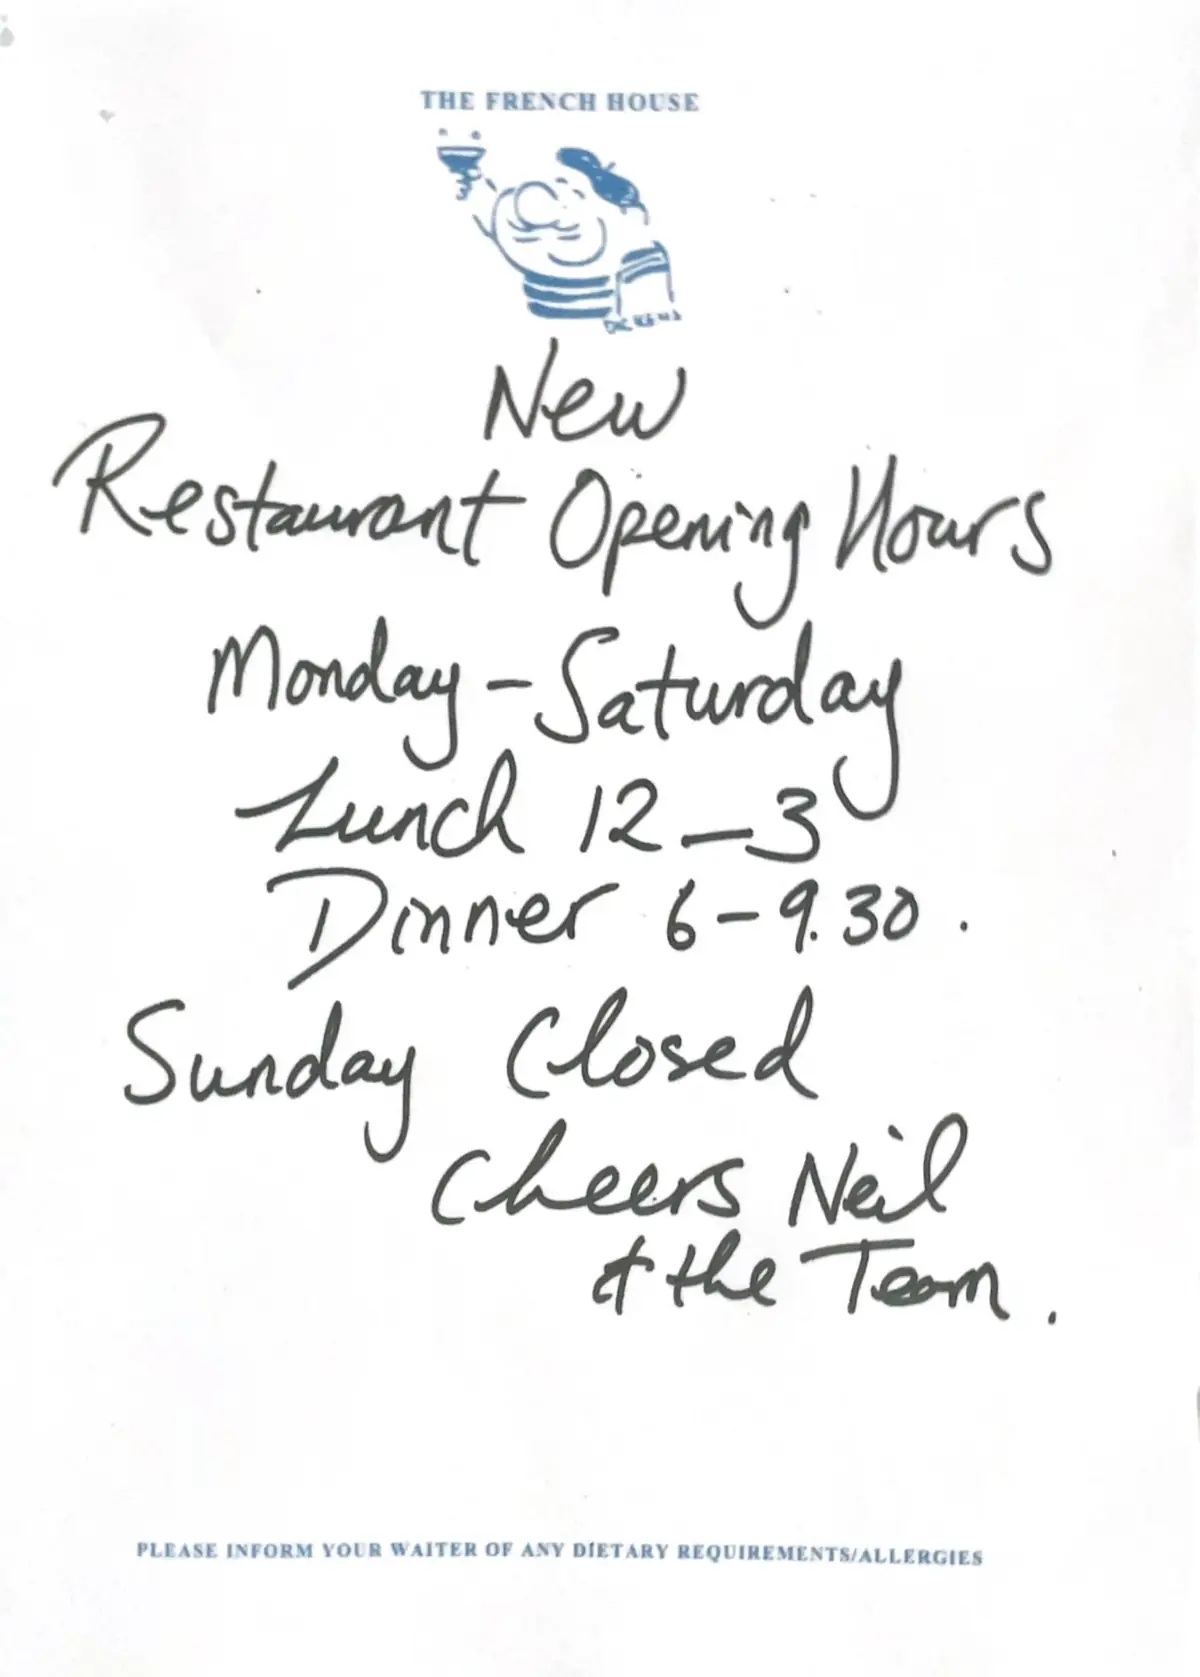 THE FRENCH HOUSE
DICKENS
New
Restaurant Opening Hours
Monday - Saturday
Lunch 12 - 3
Dinner 6 - 9.30.
Sunday Closed
Cheers Neil
& the Team.
PLEASE INFORM YOUR WAITER OF ANY DIETARY REQUIREMENTS/ALLERGIES